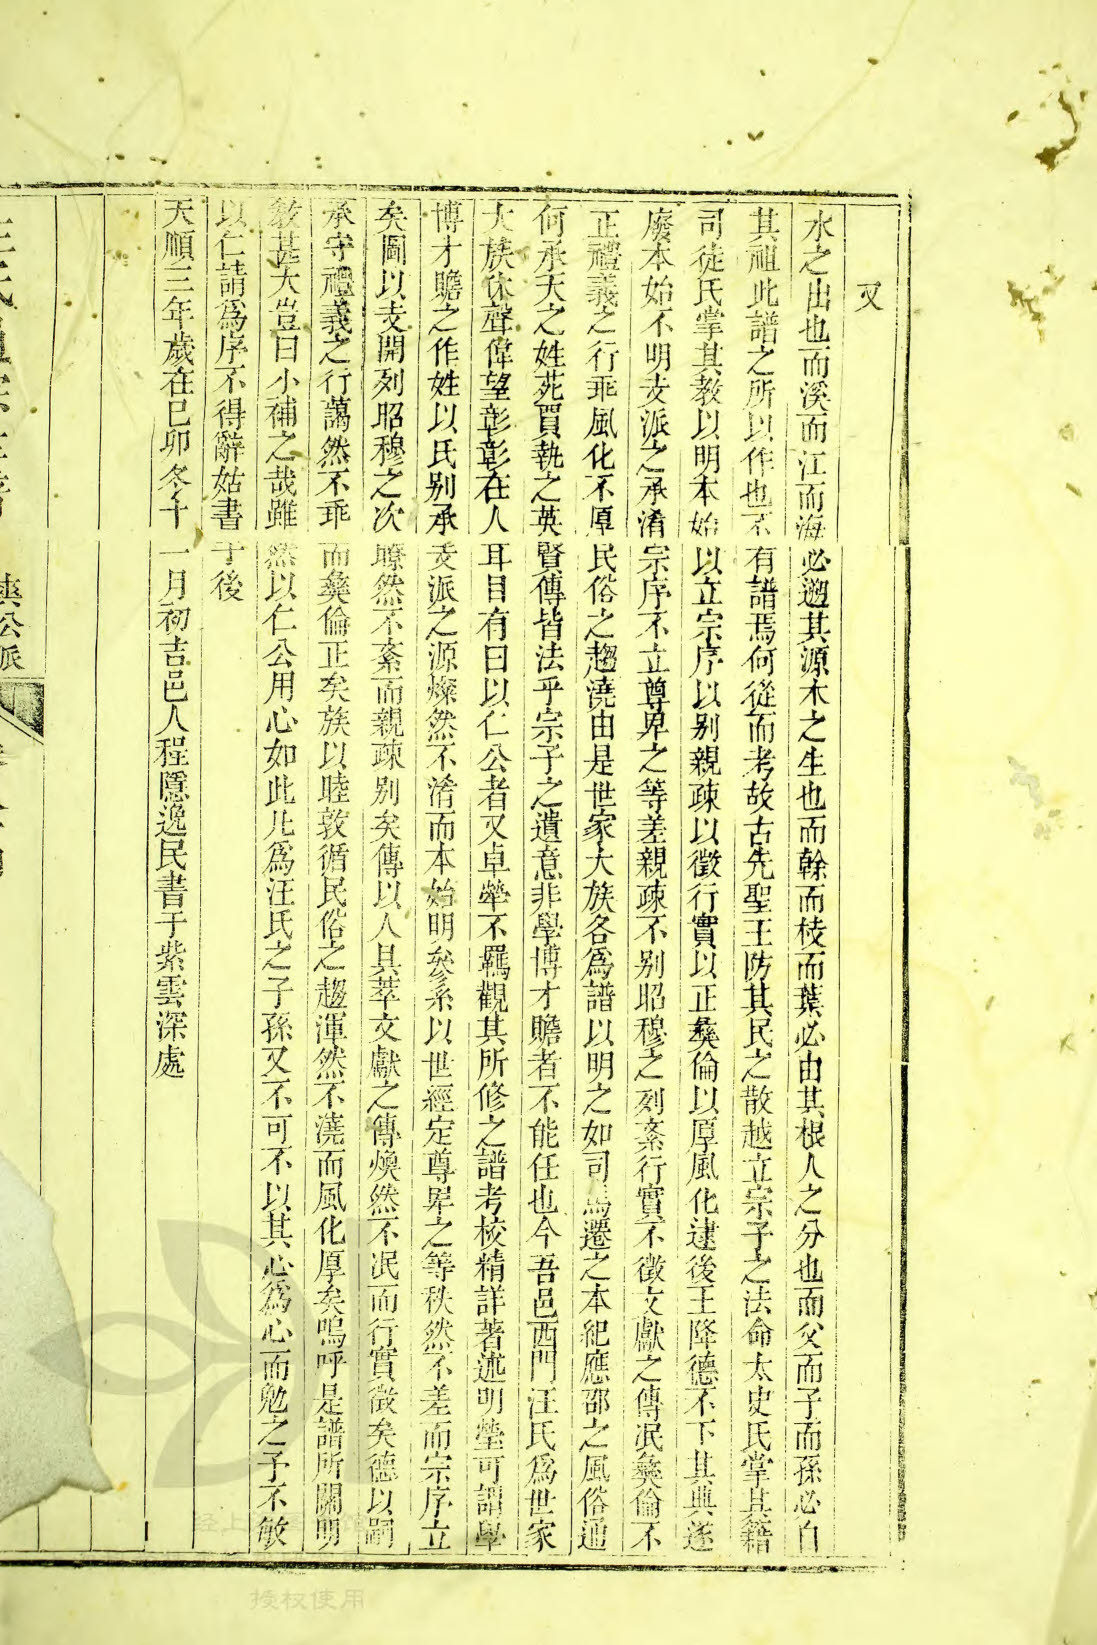 又
水之出也而溪而江而海必遡其源木之生也而榦而枝而葉必由其根人之分也而父而子而孫必自
其祖此譜之所以作也不有譜焉何從而考故古先聖王防其民之散越立宗子之法命太史氏掌其籍
司徒氏掌其教以明本始以立宗序以别親疎以徵行實以正彜倫以厚風化逮後王降德不下其典遂
廢本始不明支派之承淆宗序不立尊卑之等差親疎不别昭穆之列紊行實不徵文獻之傳泯彜倫不
正禮義之行乖風化不厚民俗之趨澆由是世家大族各為譜以明之如司馬遷之本紀應邵之風俗通
何承天之姓苑賈執之英賢傳皆法乎宗子之遺意非學博才贍者不能任也今吾邑西門汪氏為世家
大族休聲偉望彰彰在人耳目有曰以仁公者又卓犖不羈觀其所修之譜考校精詳著述明瑩可謂學
博才贍之作姓以氏别承支派之源燦然不淆而本始明參系以世經定尊卑之等秩然不差而宗序立
矣圖以支開列昭穆之次瞭然不紊而親疎别矣傳以人具萃文獻之傳煥然不泯而行實徵矣德以嗣
承守禮義之行藹然不乖而彜倫正矣族以睦敦循民俗之趨渾然不澆而風化厚矣嗚呼是譜所關明
敎甚大豈曰小補之哉雖然以仁公用心如此凡為汪氏之子孫又不可不以其心為心而勉之予不敏
以仁請為序不得辭姑書于後
天順三年歲在己卯冬十一月初吉邑人程隱逸民書于紫雲深處
爽公派
授权使用